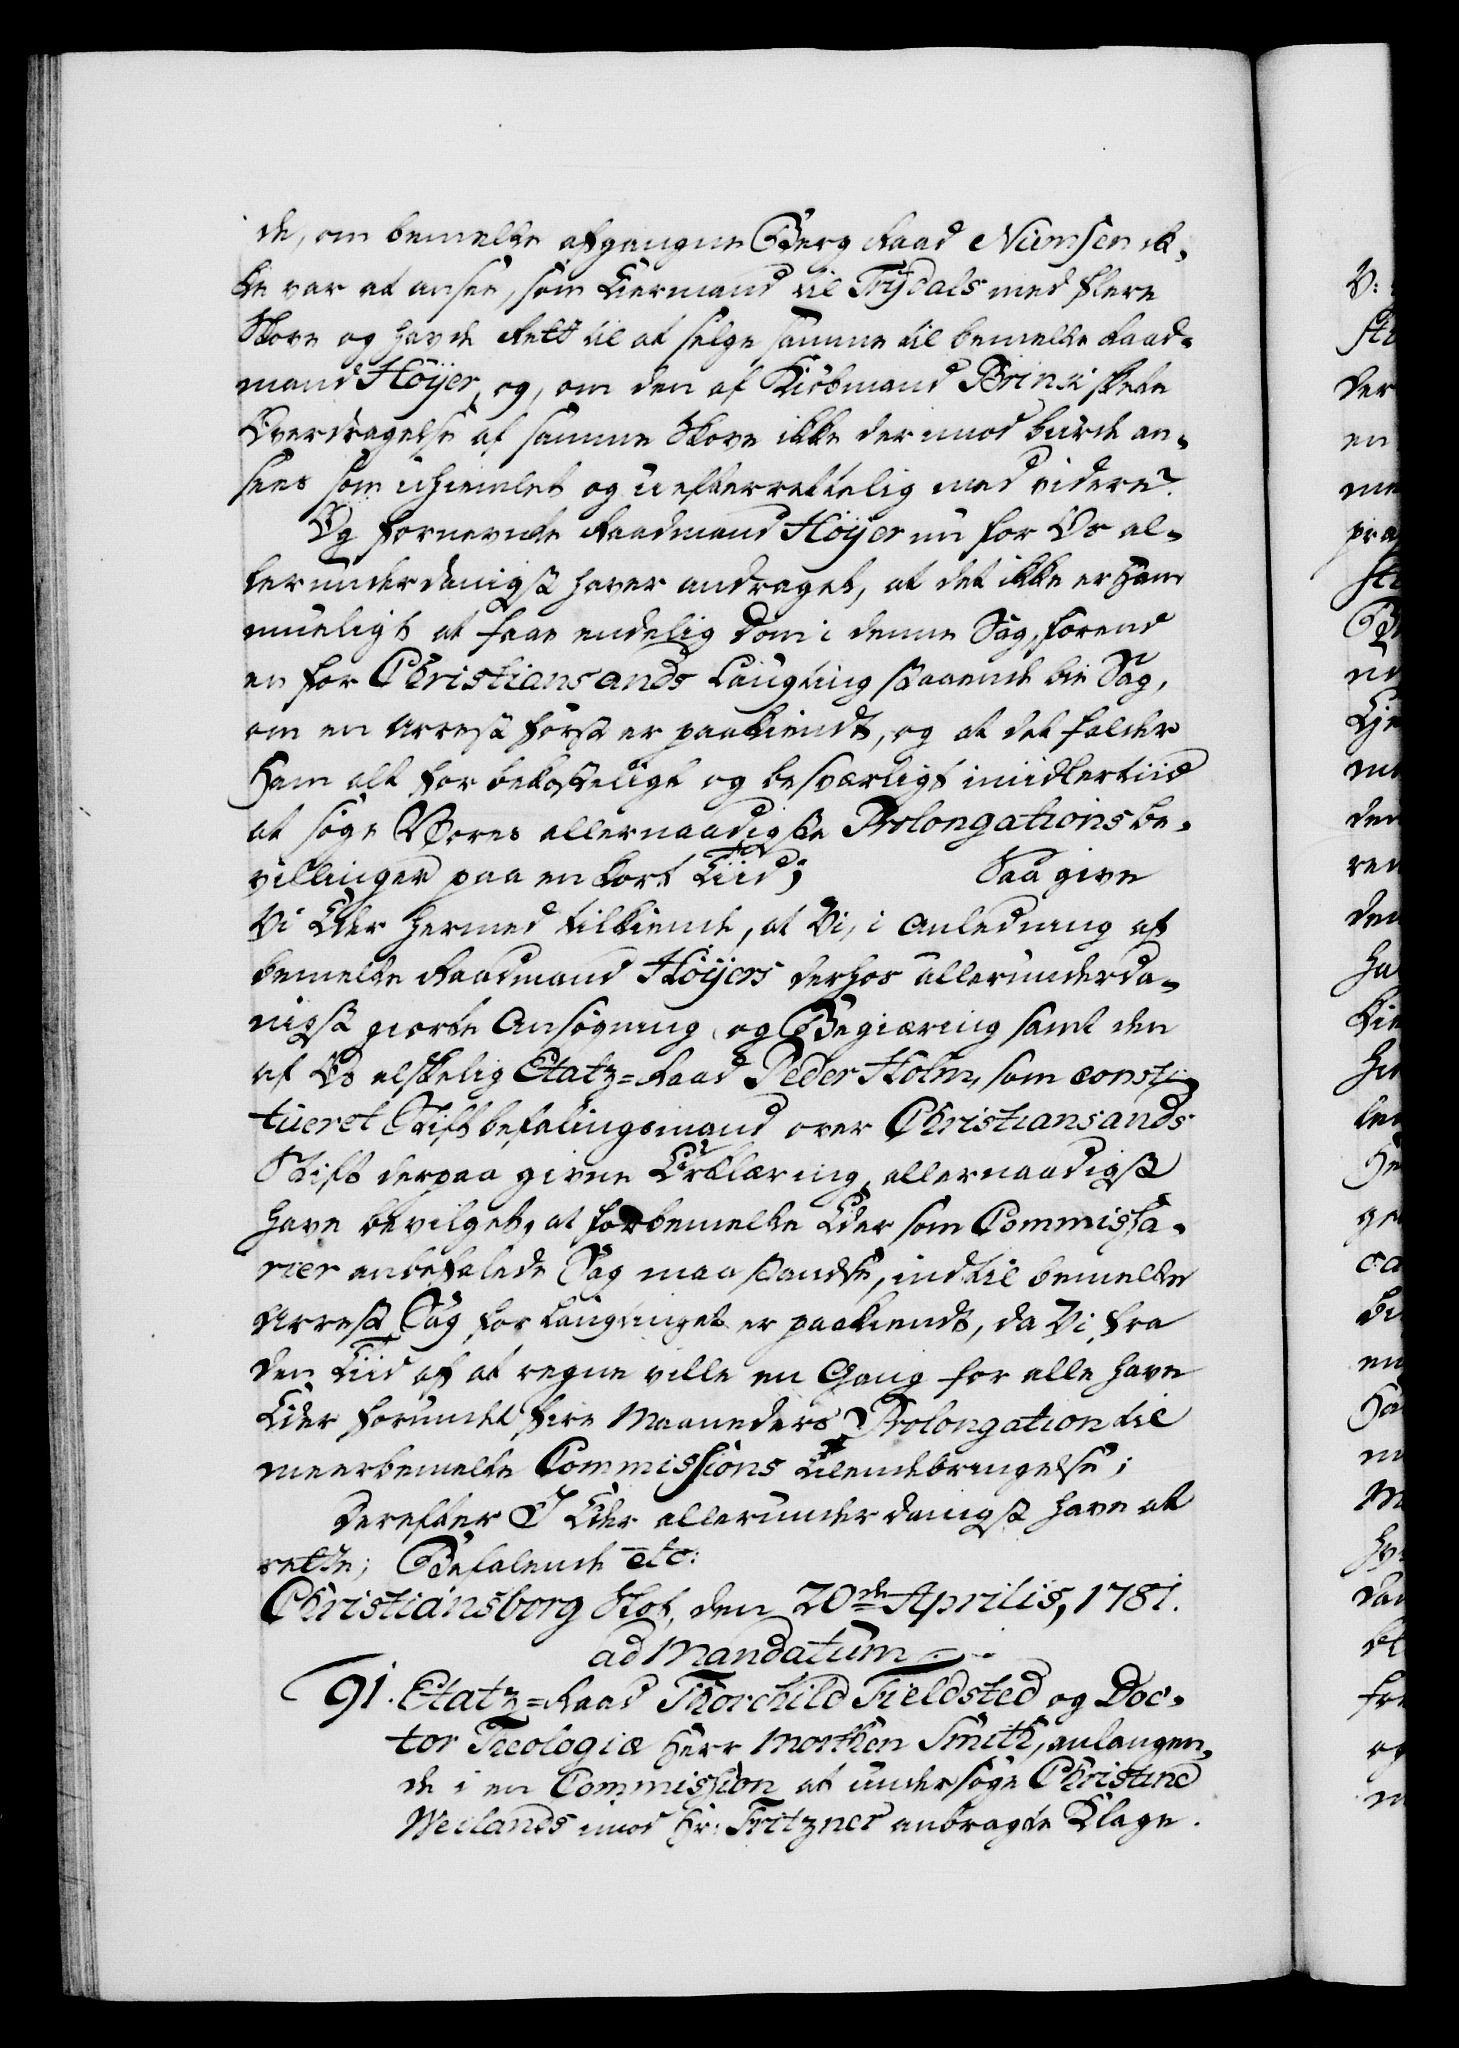 de, om bemelte afgangne Berg Raad Numsen ik-
ke var at ansee, som Eiermand til Frÿdals med flere
Skove og havde Rett til at selge samme til bemelte Raad-
mand Höÿer, og, om den af Kiöbmand Brink skete
Overdragelse af samme Skove ikke derimod burde an-
sees som uhiemlet og uefterrettelig med videre?
Og fornevnte Raadmand Höÿer nu for Os al-
lerunderdanigst haver andraget, at det ikke er Ham
mueligt at faae endelig Dom i denne Sag, forend
en for Christiansands Laugting staaende bie Sag,
om en Arrest först er paakiendt, og at det falder
Ham alt for bekosteligt og besværligt imidlertiid
at söge Vores allernaadigste Prolongationsbe-
villinger paa en kort Tiid; Saa give
Vi Eder hermed tilkiende, at Vi, i Anledning af
bemelte Raadmand Höÿers derhos allerunderda-
nigst giorte Ansögning og Begiæring samt den
af Os elskelig Etatz=Raad Peder Holm, som consti-
tueret Stiftbefalingsmand over Christiansands
Stift derpaa givne Erklæring, allernaadigst
have bevilget, at forbemelte Eder som Commissa-
rier anbefalede Sag maa standse, indtil bemelte
Arrest Sag for Laugtinget er paakiendt, da Vi, fra
den Tiid af at regne ville en Gang for alle have
Eder forundt fire Maaneders Prolongation til
meerbemelte Commissions Tilendebringelse;
Derefter I Eder allerunderdanigst have at
rette; Befalende etc:
Christiansborg Slot, den 20de Aprilis, 1781.
ad Mandatum
91. Etatz=Raad Thorchild Fieldsted og Doc-
tor Theologiæ Herr Morthen Smith, anlangen-
de i en Commission at undersöge Christine
Weilands imod Hr: Fritzner anbragte Klage.